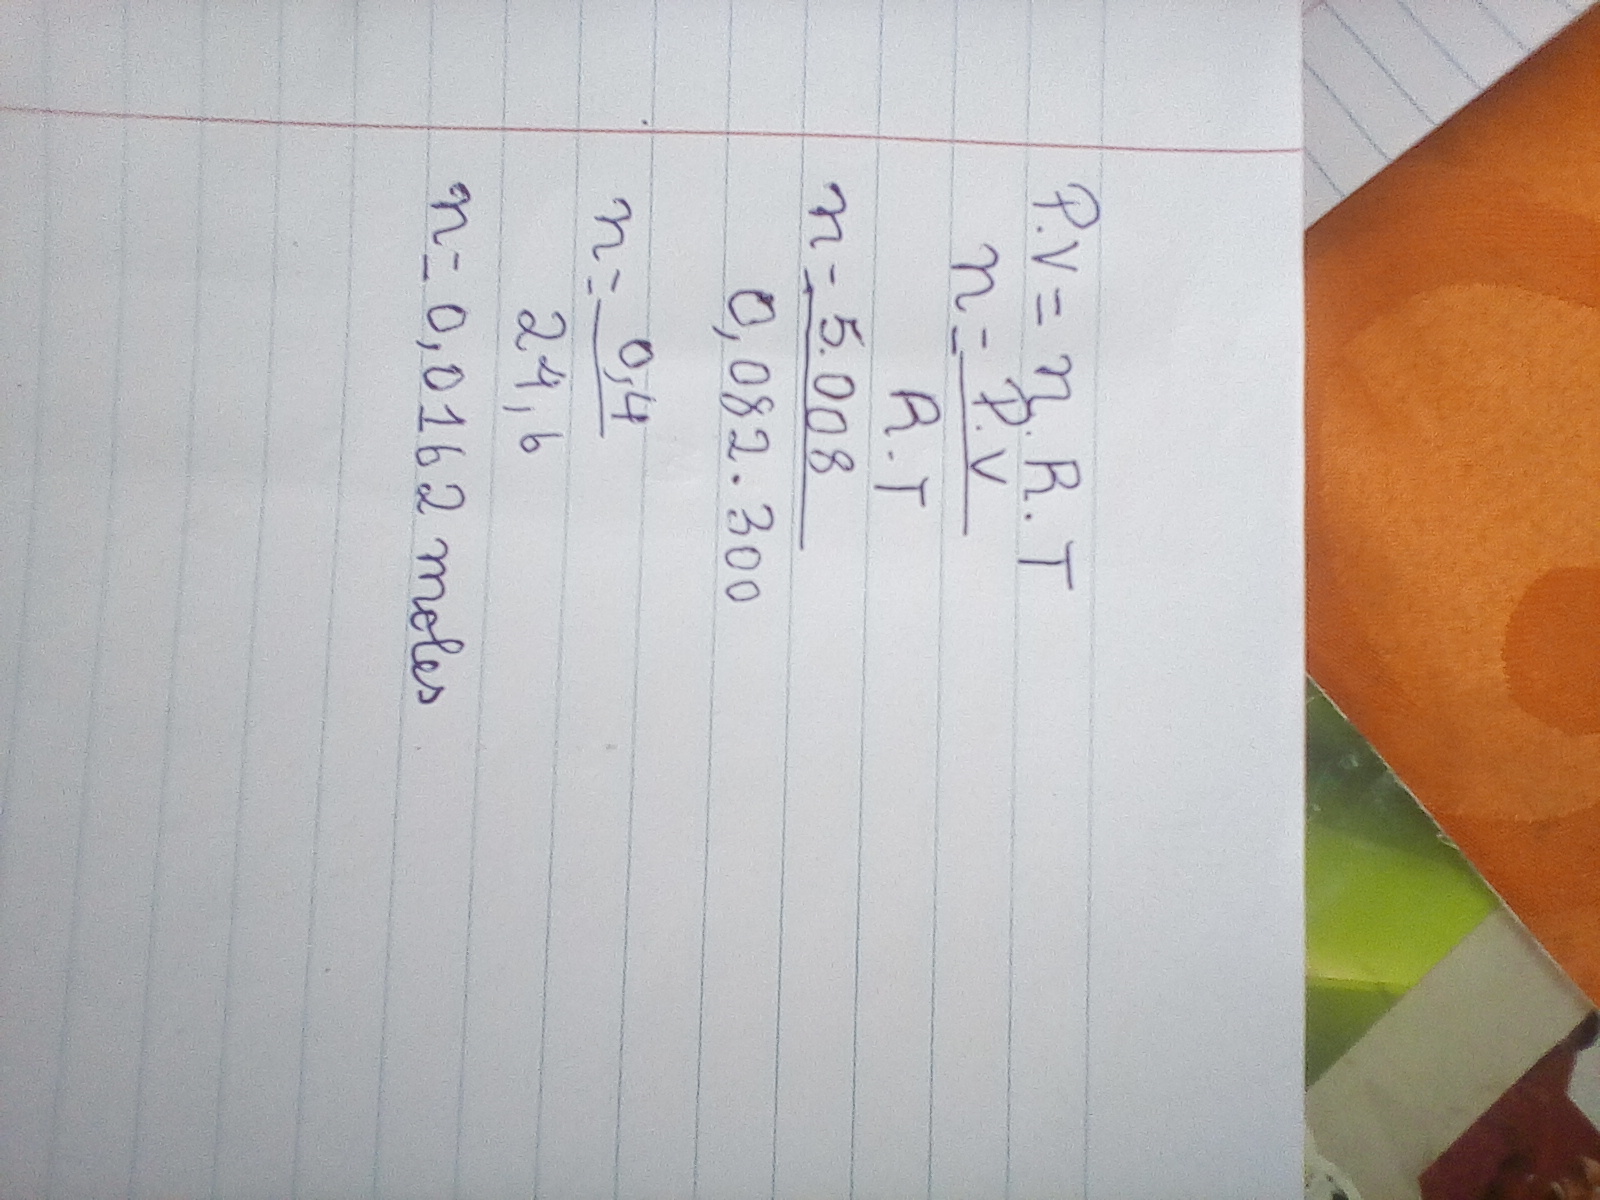 P.V = n.R.T
n = P.V
R.T
n = 5.008
0,082.300
n = 0,4
24,6
n = 0,0162 moles